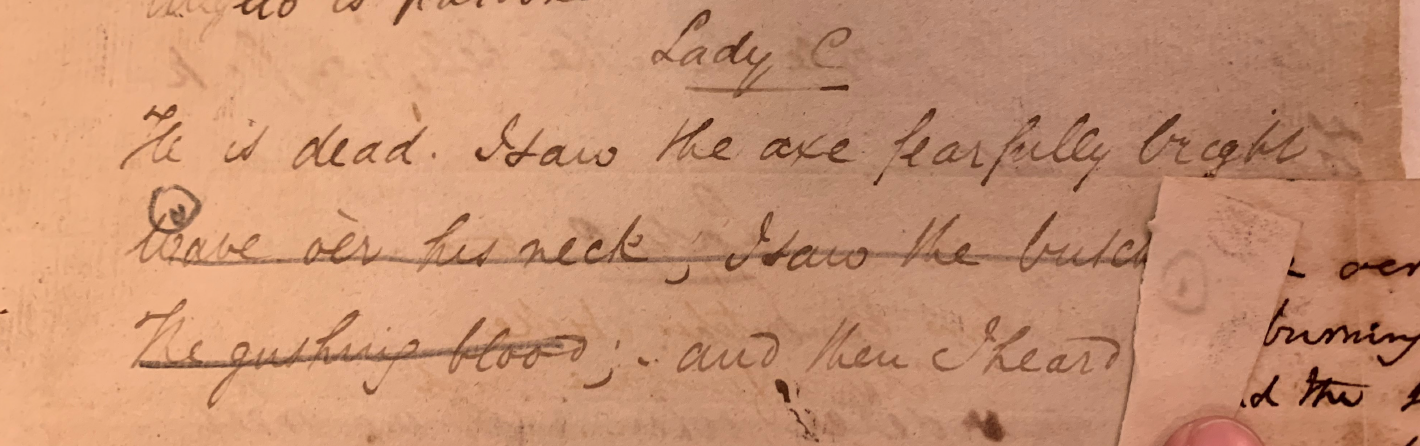 is
Lady C
He is dead. I saw the axe fearfully bright
Wave o'er his neck; I saw the
The gushing blood; - and then I heard
burning
the